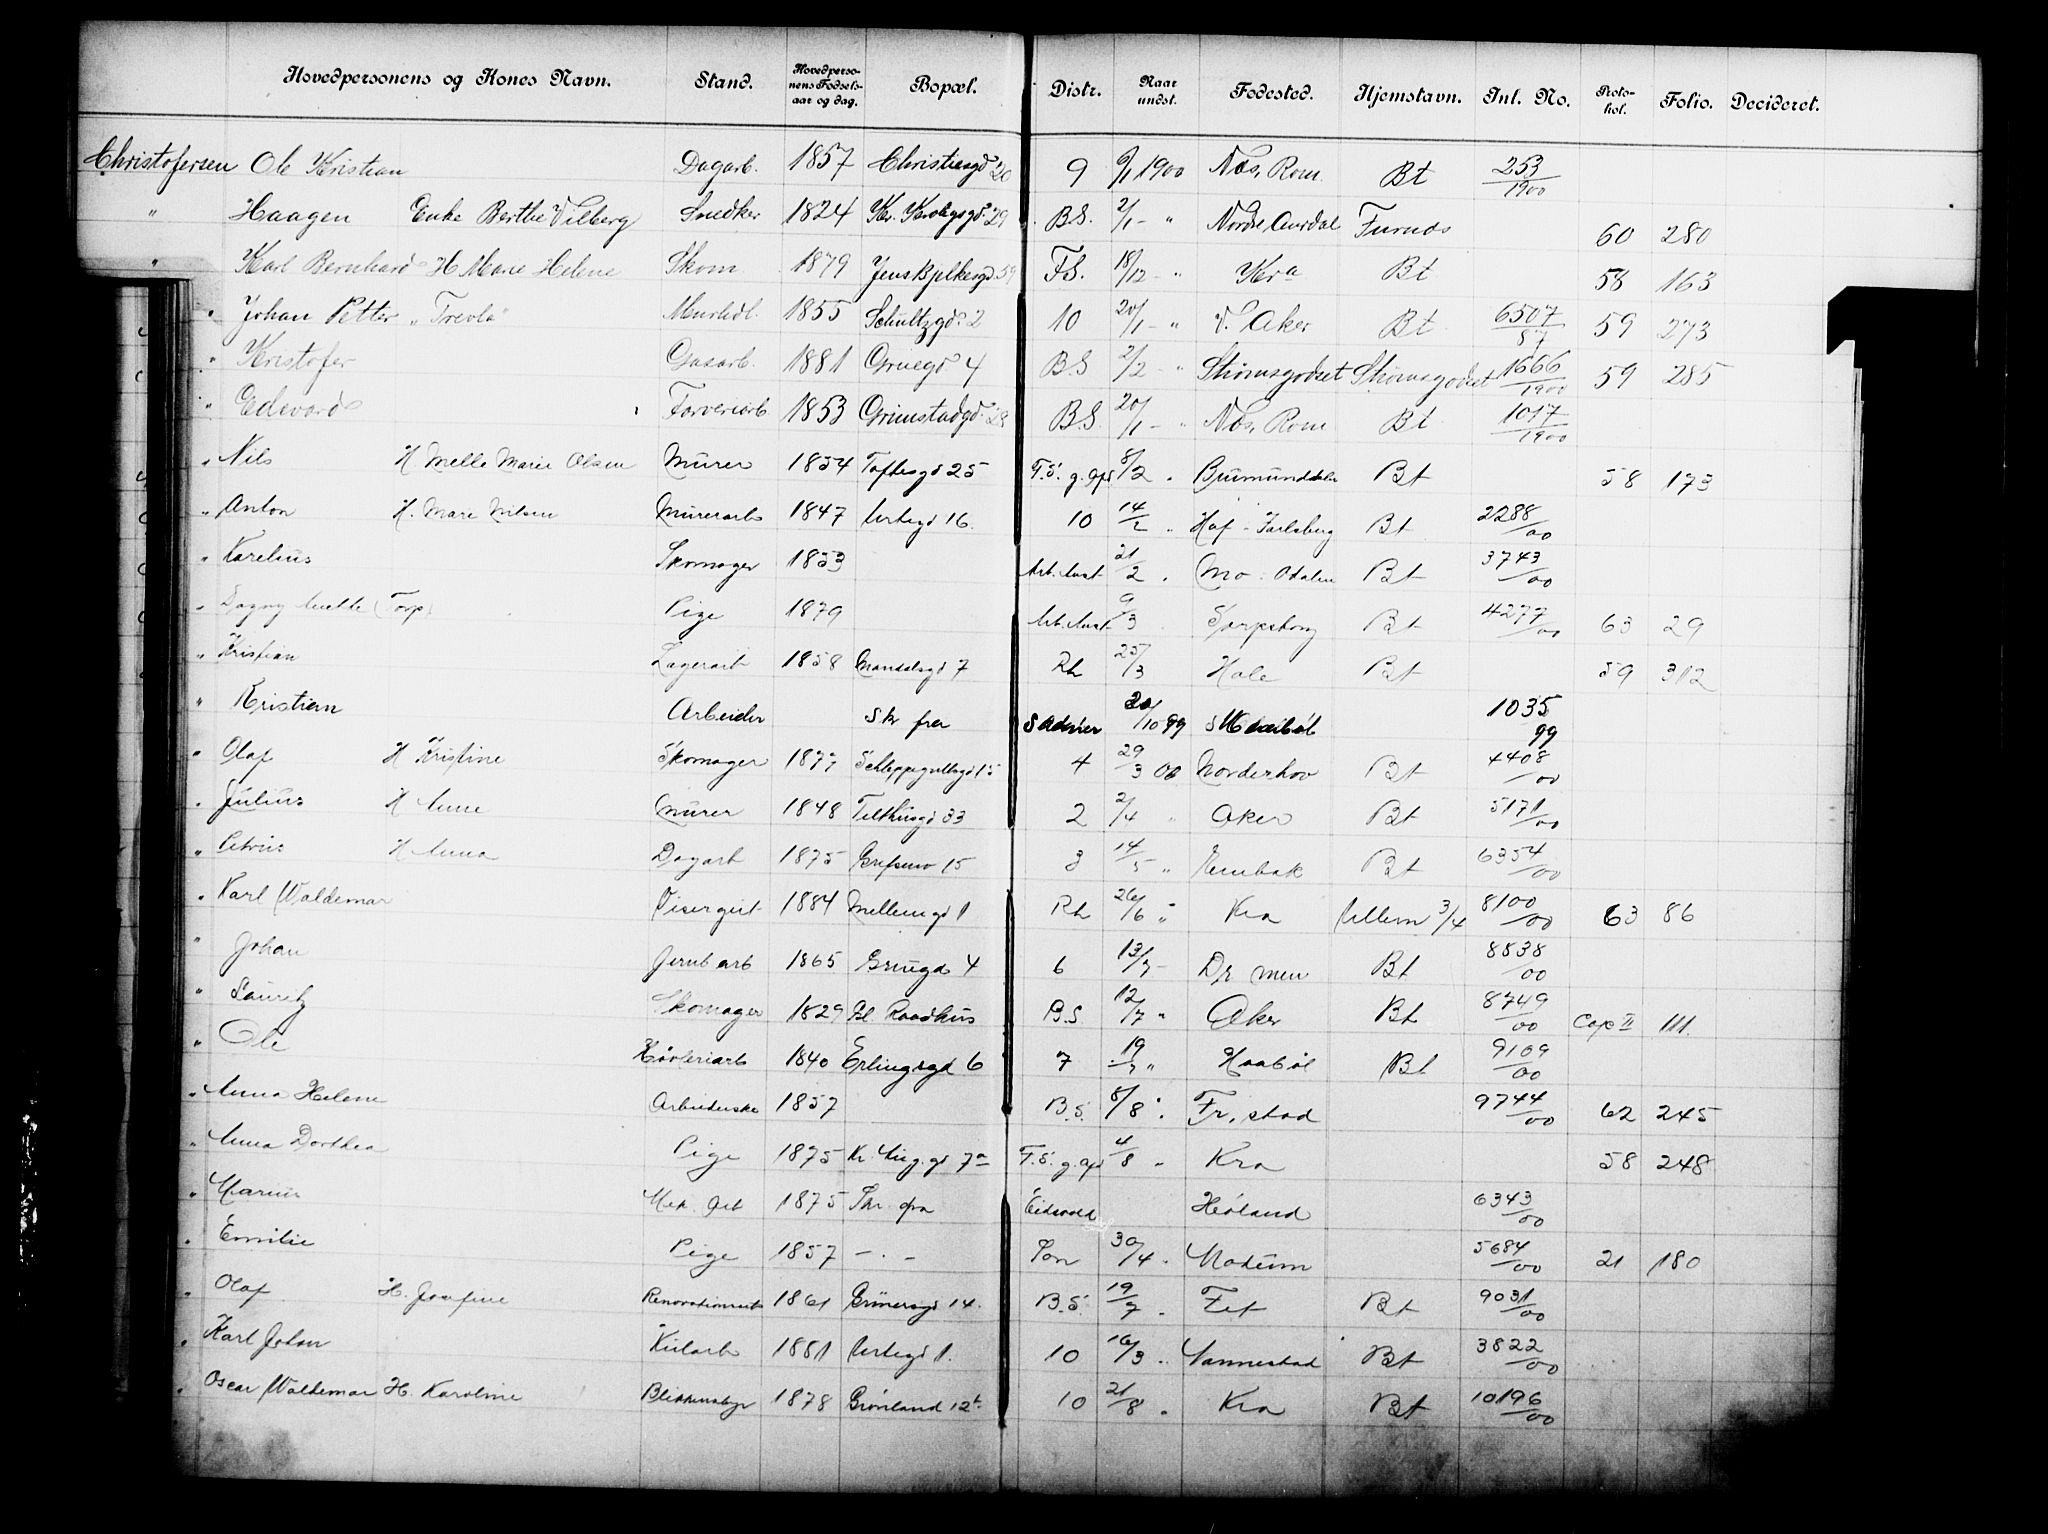 Hovedpersonens og Kones Navn. Stand. Hovedperso-nens Fødsels-aar og dag. Bopæl. Distr. Naar undst. Fødested. Hjemstavn. Int. No. Proto-kol. Folio. Decideret.
Christofersen Ole Kristian Dagarb. 1857 Christiesgd 20 9 1900 Næs, Rom. Bt 253/1900
" Haagen Enke Berthe Vilberg Snedker 1824 Kr. 29 B.S. 2/1 - " Nordre Aurdal Furnds 60 280
" Karl Bernhard H Marie Helene Skom 1879 Jens Bjelkesgd 59 F.S. 18/12 - " Kra Bt 58 163
" Johan Petter "Trevla" 1855 Schultzgd. 2 10 20/1 - " V. Aker Bt 6507/87 59 273
" Kristofer Gasarb. 1881 Gruegd 4 B.S 2/2 - " Strømsgodset Strømsgodset 1666/1900 59 285
" Edvard Farveriarb 1853 Grimstadgd. 28 B.S. 20/1 - " Næs, Rom Bt 1017/1900
" Nils H Melle Marie Olsen Murer 1854 Toftesgd 25 F.S. g. opd 8/2 " Brumunddalen Bt 58 173
" Anton H. Mare Nilsen Murerarb 1847 Urtegd 16. 10 14/2 " Hof - Jarlsberg Bt 2288/00
" Karelius Skomager 1853 Arb. Anst 21/2 " Mo - Odalen Bt 3743/00
" Dagny (Torp) Pige 1879 Arb. Anst 9/3 Sarpsborg Bt 4277/00 63 29
" Kristian Lagerarb 1858 Mandalsgd 7 Rh 25/3 Hole Bt 59 312
" Kristian Arbeider Skr fra 20/10 99 1035 99
" Olaf H Kristine Skomager 1877 Schleppegrellsgd 15 4 29/3 00 Norderhov Bt 4408/00
" Julius H Anne Murer 1848 Telthusgd 33 2 2/4 " Aker Bt 5171/00
" Petrus H Anna Dagarb 1875 Grefsenv 15 3 14/5 " Enebak Bt 6354/00
" Karl Waldemar Visergut 1884 Mellemgd 1 Rh 26/6 " Kra Ullern 3/4 8100/00 63 86
" Johan Jernb arb 1865 Gruegd 4 6 13/7 - Dr men Bt 8538/00
" Lauritz Skomager 1829 Gl. Raadhus B.S. 12/7 " Aker Bt 8749/00 Cop II 111.
" Ole Høvleriarb 1840 Erlingsgd 6 7 19/7 " Haabøl Bt 9109/00
" Anna Helene Arbeiderske 1857 B.S. 8/8 " Fr. stad 9744/00 62 245
" Anna Dorthea Pige 1875 Kr. Aug. gd 7a F.S. g. opd 4/8 " Kra 58 248
" Marius Mek. Arb 1875 Skr. fra Eidsvold Høland 6343/00
" Emilie Pige 1857 - . - Son 30/4 " Modum 5684/00 21 180
" Olaf H. Josefine Renovationsarb 1861 Grünersgd 14. B.S. 19/7 " Fet Bt 9031/00
" Karl Johan Kularb 1881 Urtegd 1. 10 16/3 " Nannestad Bt 3822/00
" Oscar Waldemar H. Karoline Blikkenslgr 1878 Grønland 12b 10 21/8 " Kra Bt 10196/00